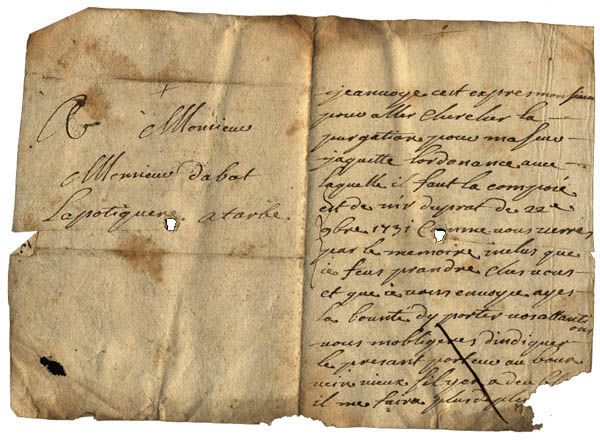 A Monsieur
Monsieur dabat
Lapotiquere atarbe
jeanvoye cest expres monsieur
pour aller chercher la
purgation pour ma seur
jaquitte lordonance avec
laquelle il faut la compoié
est de mr duprat de 22e
9bre 1731 Comme vous verres
par le memoire inclus que
ie feus prandre ches vous
et que ie vous envoye ayes
la bounté dy porter vos attanti
ons
vous mobligeres dindiquer
le presant porteur ou boire
vin vieux sil yen a de
il me faira plus de